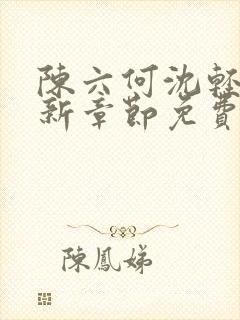 陳六何沈輕
新章節免費
陳鳳娣